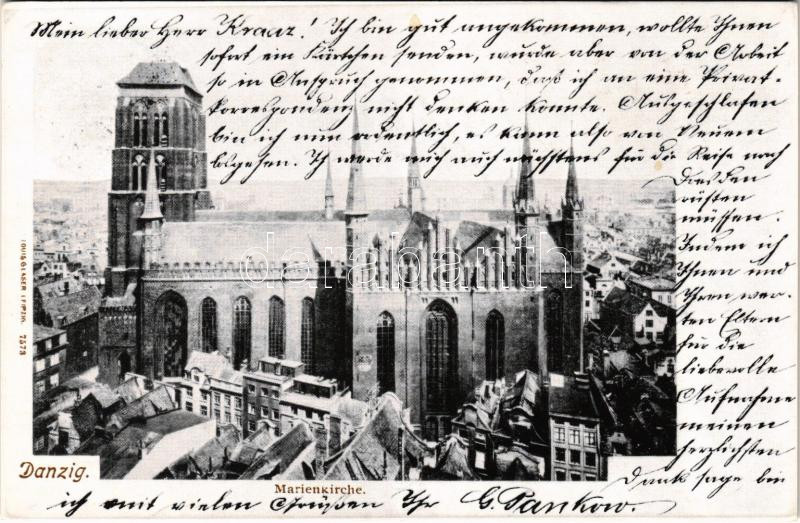 Mein lieber Herr Kranz! Ich bin gut angekommen, wollte Ihnen
sofort ein Kärtchen senden, wurde aber von der Arbeit
so in Anspruch genommen, daß ich an eine Privat-
korrespondenz nicht denken konnte. Ausgeschlafen
bin ich nun ordentlich, es kann also von Neuem
losgehen. Ich werde mich auch nächstens für die Reise nach
Dresden
rüsten
müssen.
Indem ich
Ihnen und
Ihren wer-
ten Eltern
für die
liebevolle
Aufnahme
meinen
herzlichsten
Dank sage bin
ich mit vielen Grüßen Ihr G. Pankow.
darabanth
LOUIS GLASER LEIPZIG. 7573
Danzig.
Marienkirche.